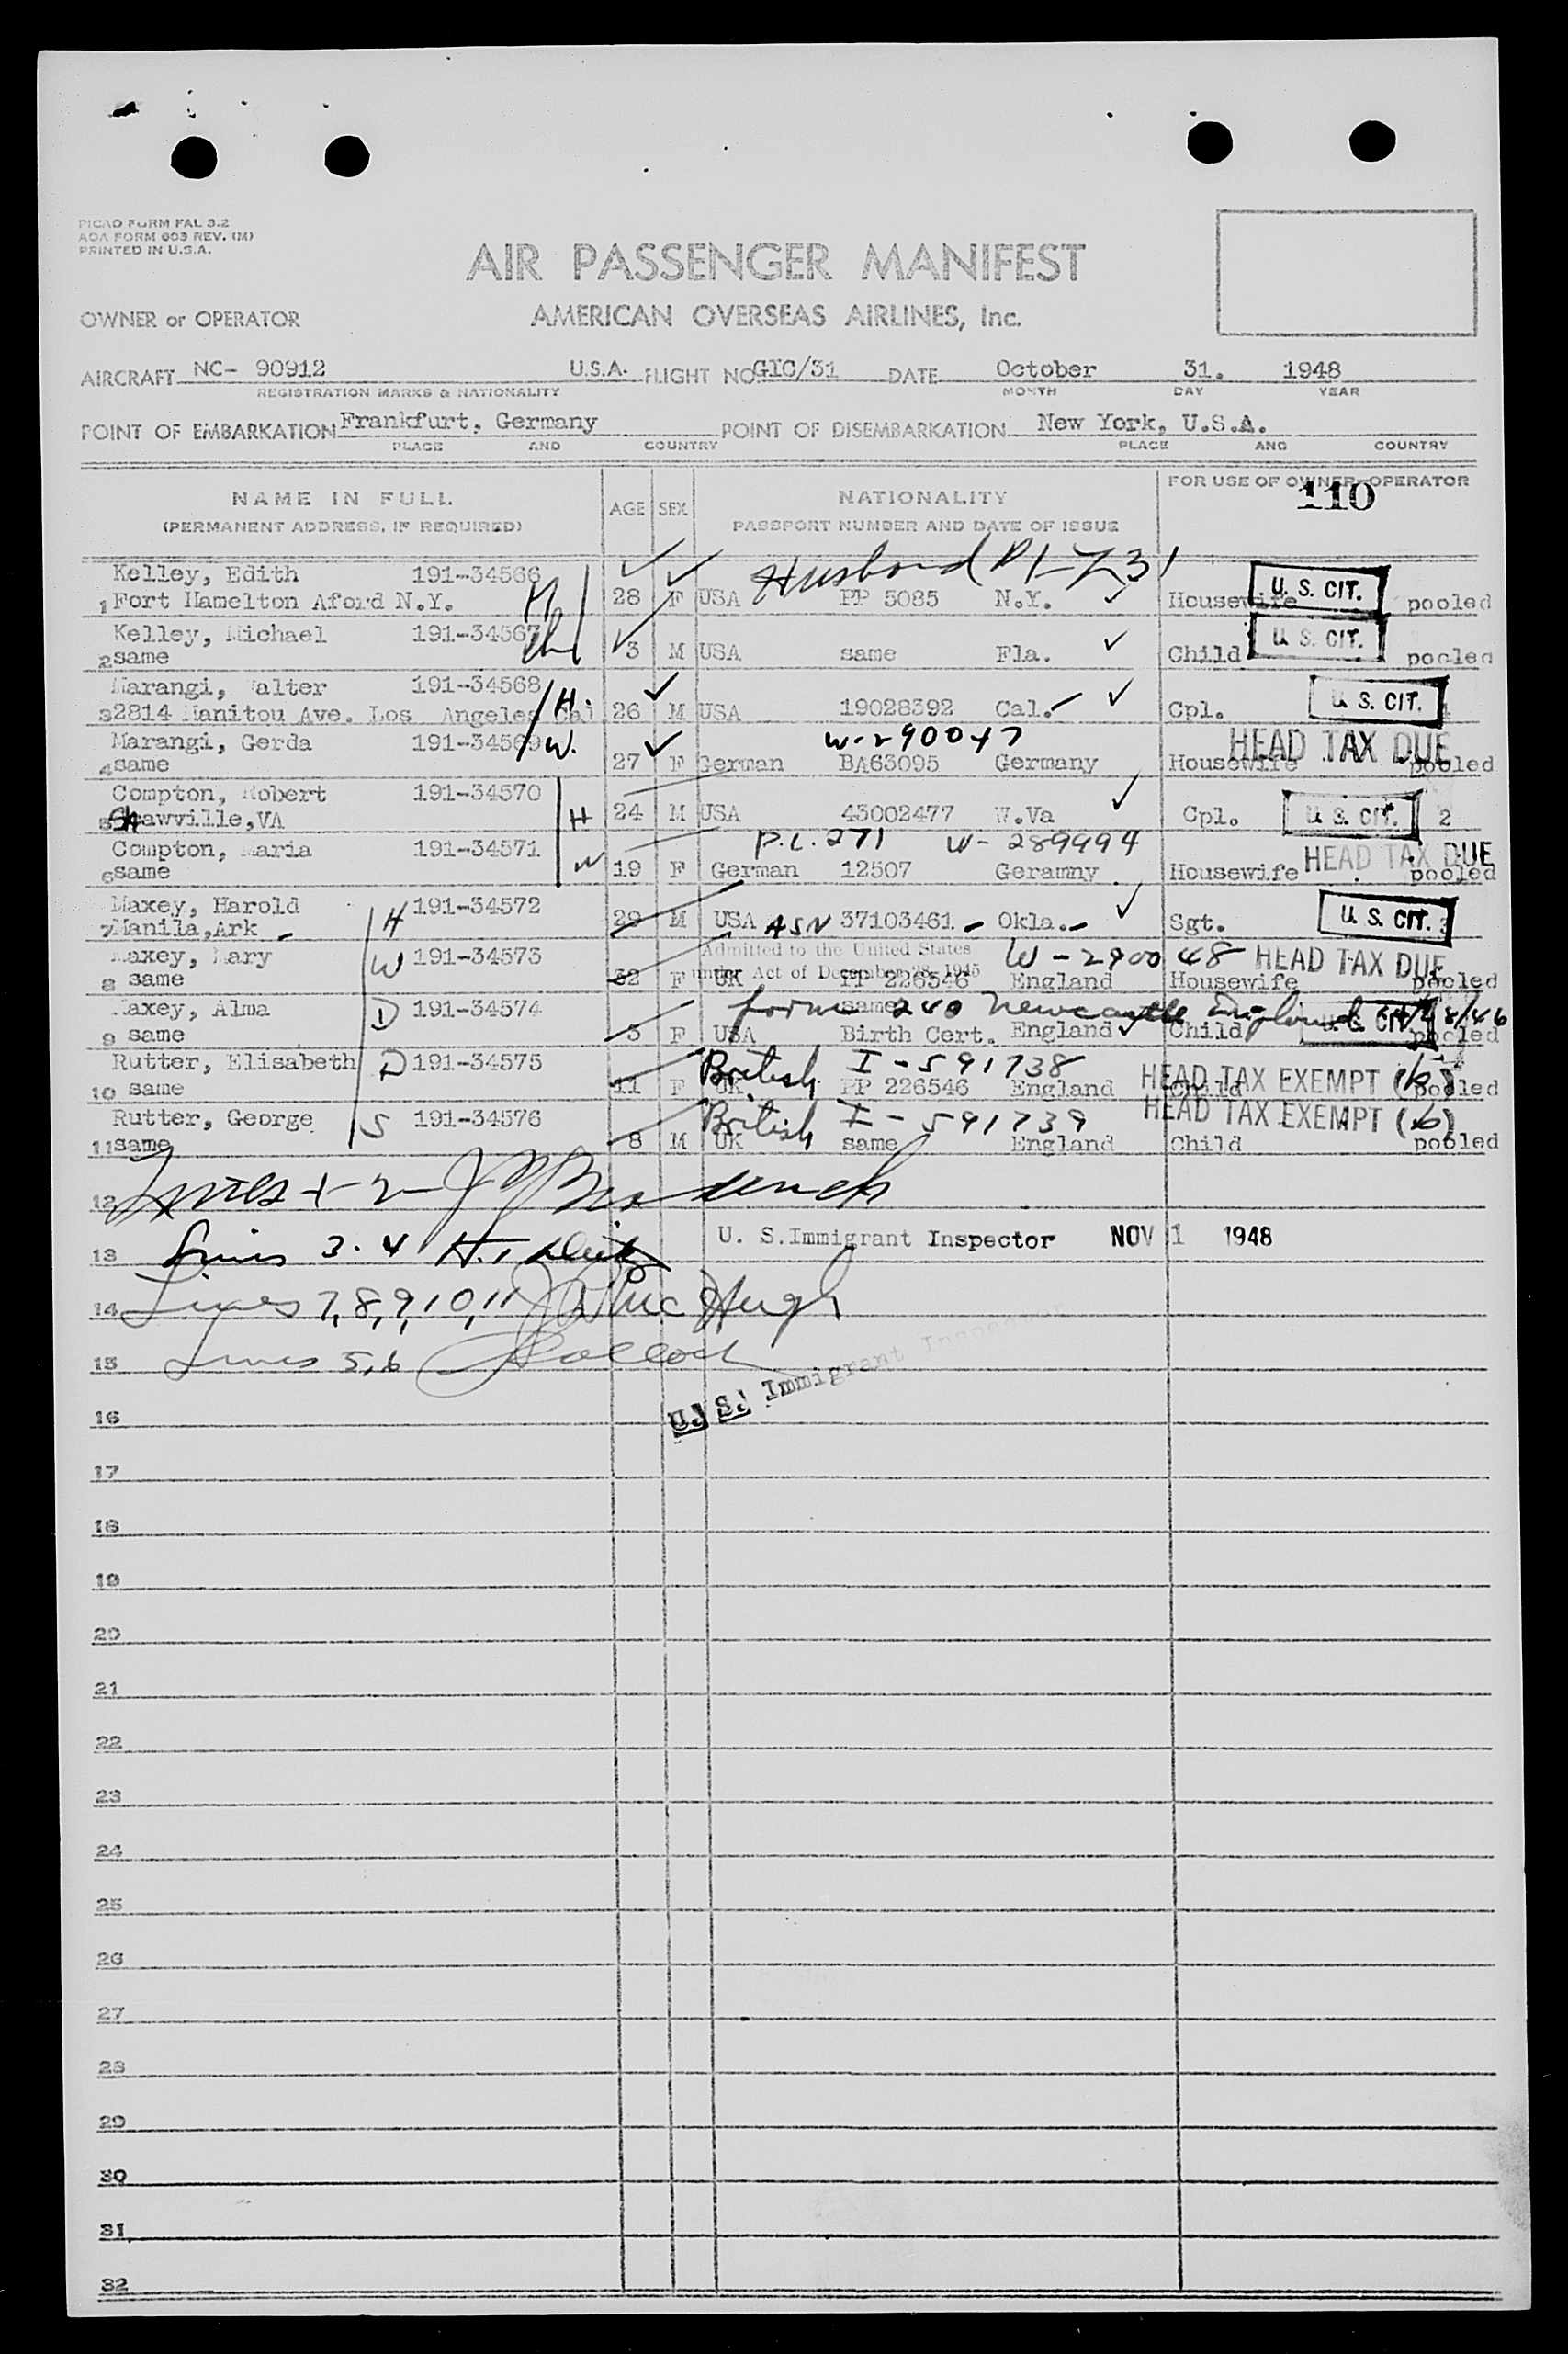 PICAO FORM FAL 3.2
AOA FORM 603 REV. (M)
PRINTED IN U.S.A.
AIR PASSENGER MANIFEST
OWNER or OPERATOR AMERICAN OVERSEAS AIRLINES, Inc.
AIRCRAFT NC- 90912 U.S.A. FLIGHT NO. GIC/31 DATE October 31. 1948
REGISTRATION MARKS & NATIONALITY MONTH DAY YEAR
POINT OF EMBARKATION Frankfurt, Germany POINT OF DISEMBARKATION New York, U.S.A.
PLACE AND COUNTRY PLACE AND COUNTRY
NAME IN FULL AGE SEX NATIONALITY FOR USE OF OWNER OPERATOR
110
(PERMANENT ADDRESS, IF REQUIRED) PASSPORT NUMBER AND DATE OF ISSUE
Kelley, Edith 191-34566 Husband
1 Fort Hamelton Aford N.Y. 28 F USA PP 5085 N.Y. Housewife U. S. CIT. pooled
Kelley, Michael 191-34567
2 same 3 M USA same Fla. Child U. S. CIT. pooled
Marangi, Walter 191-34568 H.
3 2814 Manitou Ave. Los Angeles Cal 26 M USA 19028392 Cal. Cpl. U. S. CIT. 1
Marangi, Gerda 191-34569 W. W-290047 HEAD TAX DUE
4 same 27 F German BA63095 Germany Housewife pooled
Compton, Robert 191-34570
5 Shawville,VA H 24 M USA 43002477 W.Va Cpl. U. S. CIT. 2
Compton, Maria 191-34571 W P.L. 271 W-289994 HEAD TAX DUE
6 same 19 F German 12507 Geramny Housewife pooled
Maxey, Harold 191-34572
7 Manila,Ark H 29 M USA ASN 37103461 Okla. Sgt. U. S. CIT. 3
Maxey, Mary W 191-34573 Admitted to the United States W-290048 HEAD TAX DUE
under Act of December 28, 1945
8 same 32 F UK PP 226546 England Housewife pooled
Maxey, Alma D 191-34574 same form 240 Newcastle England
9 same 3 F USA Birth Cert. England Child U. S. CIT. pooled
Rutter, Elisabeth D 191-34575 British I-591738
10 same 11 F UK PP 226546 England Child HEAD TAX EXEMPT pooled
Rutter, George S 191-34576 British I-591739 HEAD TAX EXEMPT (b)
11 same 8 M UK same England Child pooled
12
13 Lines 3.4 U. S. Immigrant Inspector NOV 1 1948
14 Lines 7,8,9,10,11
15 Lines 5,6
U. S. Immigrant Inspector
16
17
18
19
20
21
22
23
24
25
26
27
28
29
30
31
32